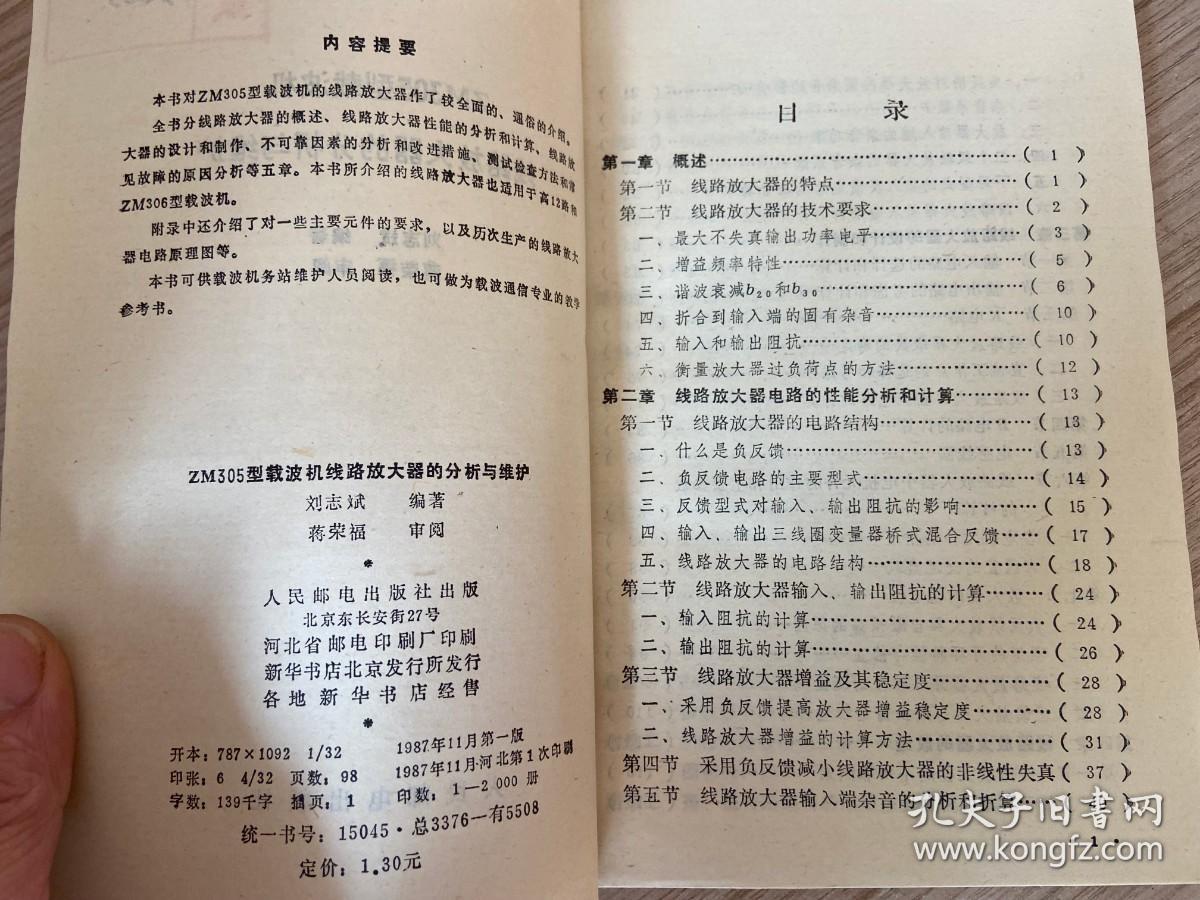 内容提要
本书对ZM305型载波机的线路放大器作了较全面的、通俗的介绍。
全书分线路放大器的概述、线路放大器性能的分析和计算、线路放
大器的设计和制作、不可靠因素的分析和改进措施、测试检查方法和常
见故障的原因分析等五章。本书所介绍的线路放大器也适用于高12路和
ZM306型载波机。
附录中还介绍了对一些主要元件的要求，以及历次生产的线路放大
器电路原理图等。
本书可供载波机务站维护人员阅读，也可做为载波通信专业的教学
参考书。
ZM305型载波机线路放大器的分析与维护
刘志斌 编著
蒋荣福 审阅
*
人民邮电出版社出版
北京东长安街27号
河北省邮电印刷厂印刷
新华书店北京发行所发行
各地新华书店经售
*
开本：787×1092 1/32 1987年11月第一版
印张：6 4/32 页数：98 1987年11月河北第1次印刷
字数：139千字 插页：1 印数：1—2 000 册
统一书号：15045·总3376—有5508
定价：1.30元
目 录
第一章 概述……………………………………( 1 )
第一节 线路放大器的特点……………………( 1 )
第二节 线路放大器的技术要求………………( 2 )
一、最大不失真输出功率电平………………( 3 )
二、增益频率特性……………………………( 5 )
三、谐波衰减b₂₀和b₃₀………………………( 6 )
四、折合到输入端的固有杂音………………( 10 )
五、输入和输出阻抗…………………………( 10 )
六、衡量放大器过负荷点的方法……………( 12 )
第二章 线路放大器电路的性能分析和计算…………( 13 )
第一节 线路放大器的电路结构………………( 13 )
一、什么是负反馈……………………………( 13 )
二、负反馈电路的主要型式…………………( 14 )
三、反馈型式对输入、输出阻抗的影响…………( 15 )
四、输入、输出三线圈变量器桥式混合反馈……( 17 )
五、线路放大器的电路结构…………………( 18 )
第二节 线路放大器输入、输出阻抗的计算………( 24 )
一、输入阻抗的计算…………………………( 24 )
二、输出阻抗的计算…………………………( 26 )
第三节 线路放大器增益及其稳定度………………( 28 )
一、采用负反馈提高放大器增益稳定度…………( 28 )
二、线路放大器增益的计算方法………………( 31 )
第四节 采用负反馈减小线路放大器的非线性失真( 37 )
第五节 线路放大器输入端杂音的分析和折算……(
· 1 ·
孔夫子旧书网
www.kongfz.com